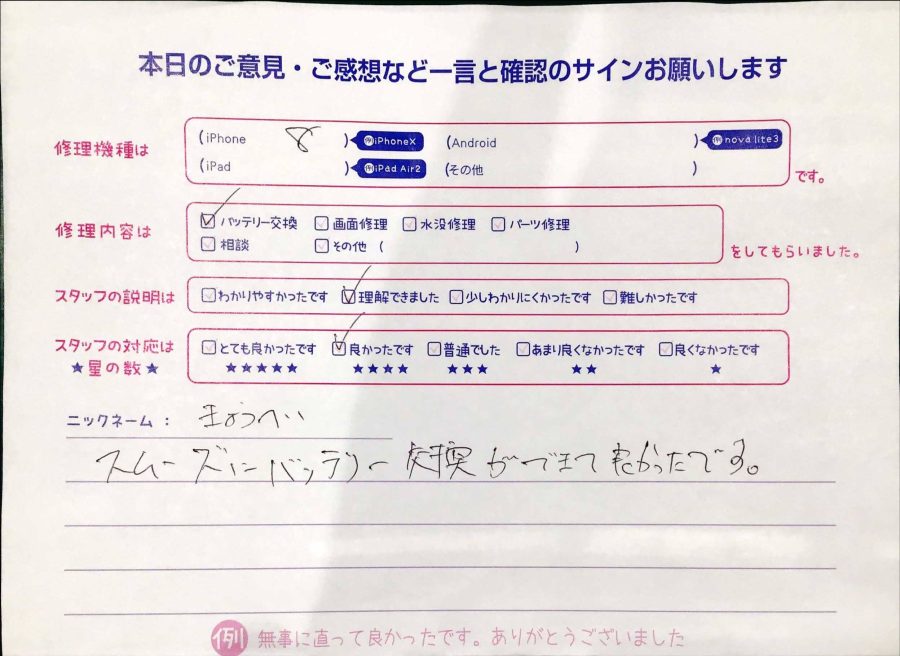 本日のご意見・ご感想など一言と確認のサインお願いします
修理機種は
(iPhone 8 ) 例iPhoneX (Android ) 例nova lite3
(iPad ) 例iPad Air2 (その他 )
です。
修理内容は
バッテリー交換 画面修理 水没修理 パーツ修理
相談 その他 ( )
をしてもらいました。
スタッフの説明は わかりやすかったです 理解できました 少しわかりにくかったです 難しかったです
スタッフの対応は とても良かったです 良かったです 普通でした あまり良くなかったです 良くなかったです
★星の数★ ★★★★★ ★★★★ ★★★ ★★ ★
ニックネーム： きょうへい
スムーズにバッテリー交換ができて良かったです。
例 無事に直って良かったです。ありがとうございました